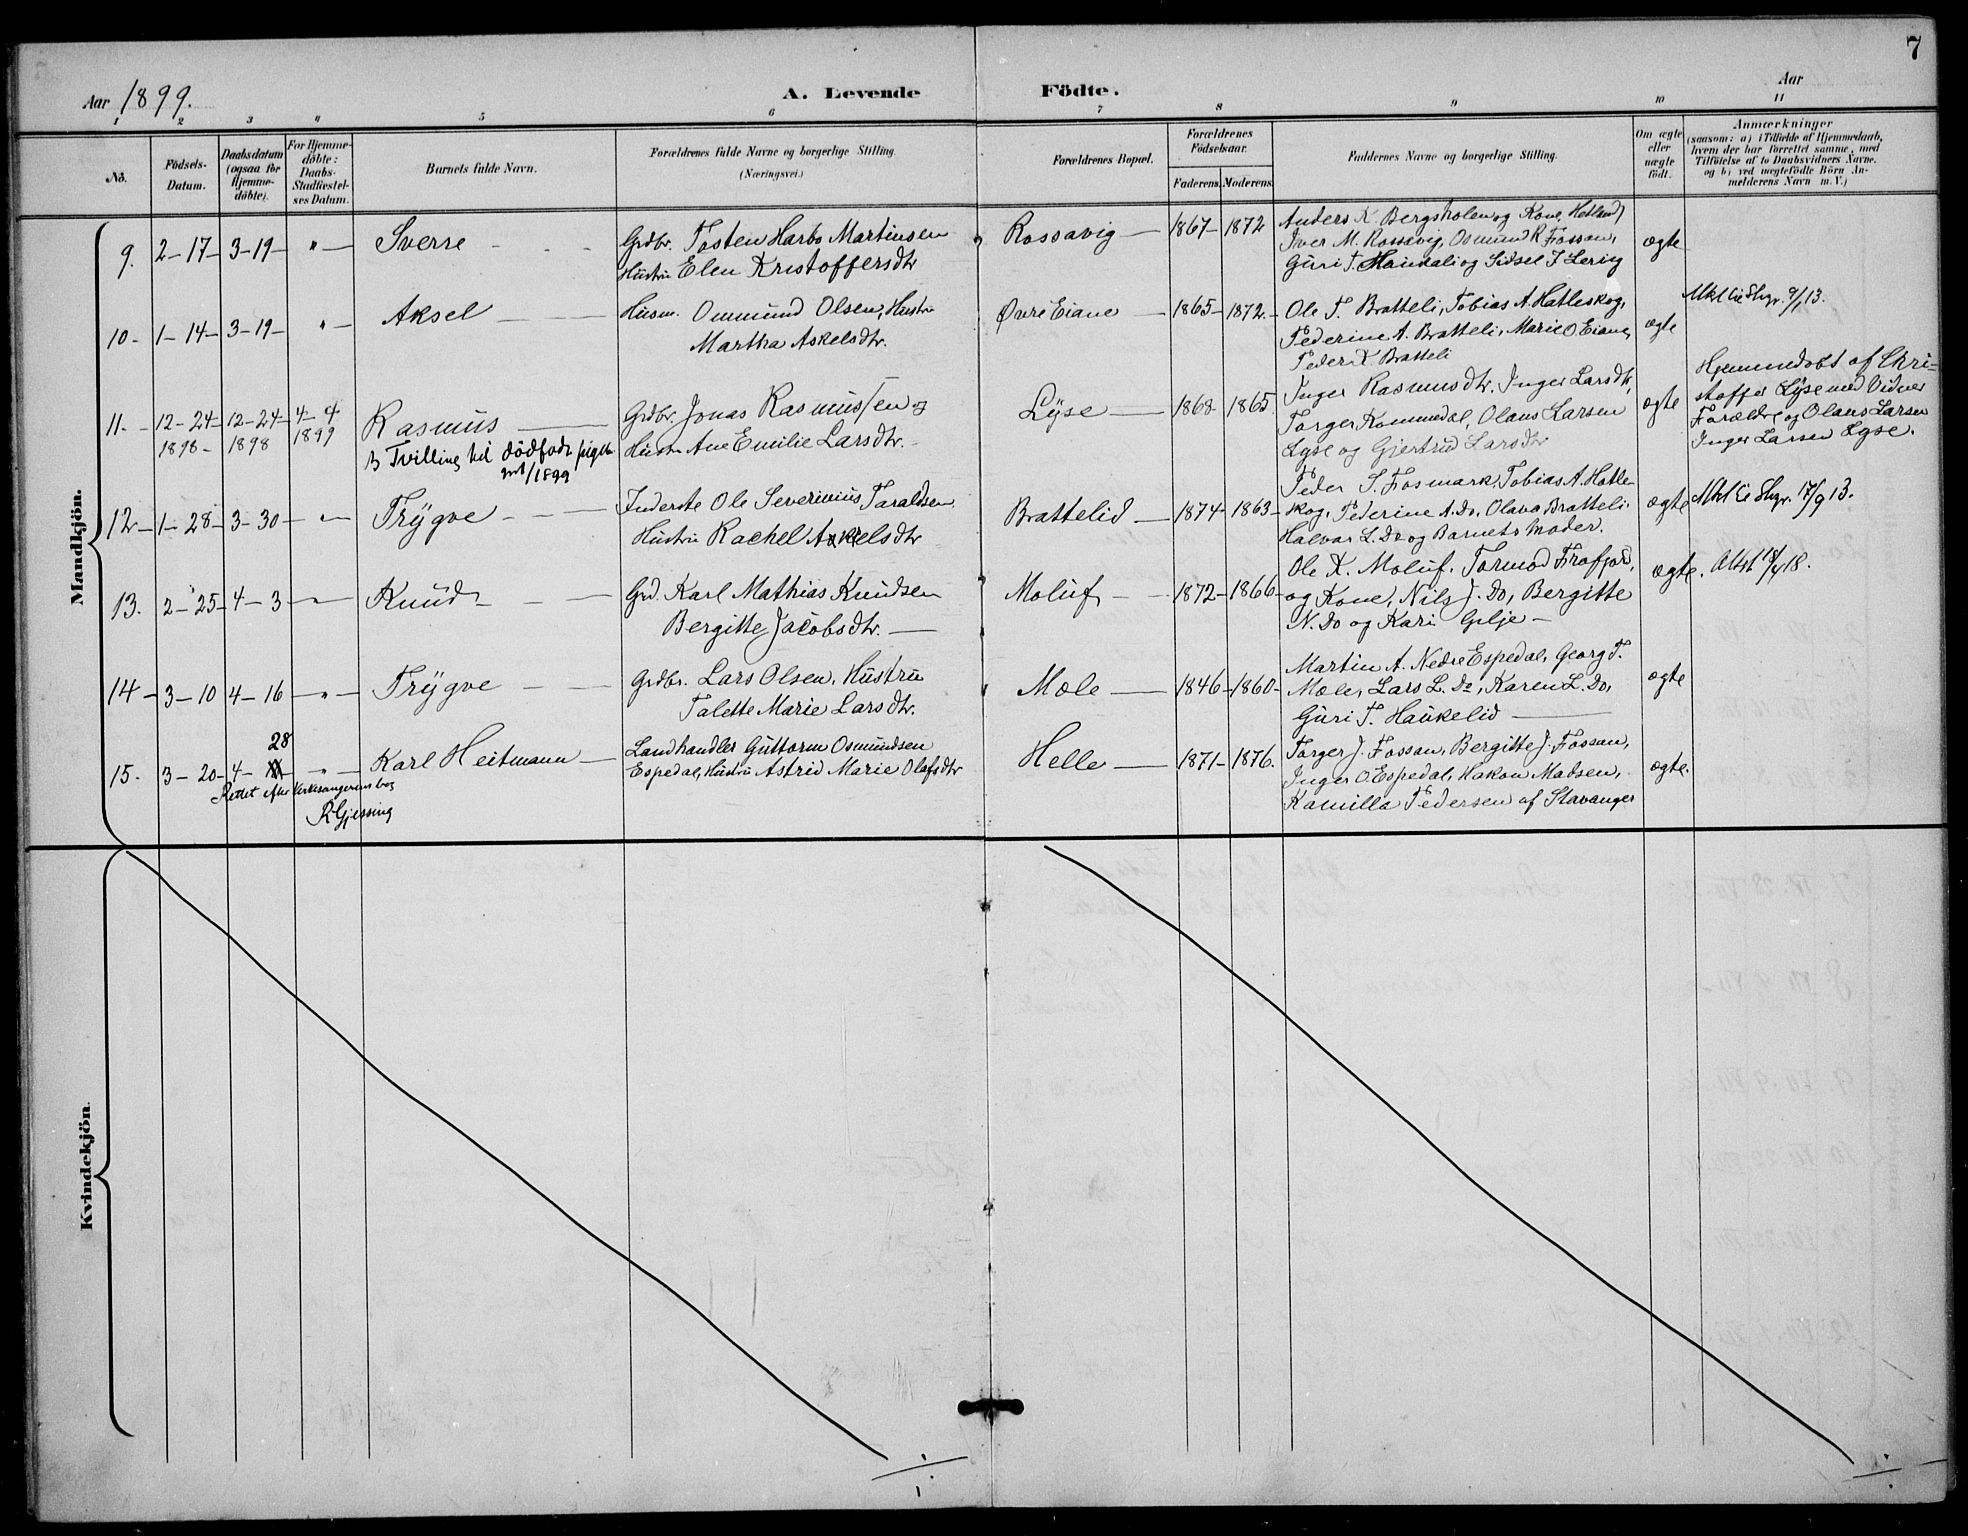 7
Aar 1899.
A. Levende Födte.
Aar
1 2 3 4 5 6 7 8 9 10 11
No.
Födsels-Datum.
Daabsdatum (ogsaa for Hjemme-döbte).
For Hjemme-döbte: Daabs-Stadfæstel-ses Datum.
Barnets fulde Navn.
Forældrenes fulde Navne og borgerlige Stilling.
(Næringsvei.)
Forældrenes Bopæl.
Forældrenes Födselsaar.
Faderens. Moderens.
Faddernes Navne og borgerlige Stilling.
Om ægte eller uægte födt.
Anmærkninger
(saasom: a) i Tilfælde af Hjemmedaab,
hvem der har forrettet samme, med
Tilföielse af to Daabsvidners Navne.
og b) ved uægtefödte Börn An-
melderens Navn m. V.)
Mandkjön.
9. 2-17- 3-19- " - Sverre - - -
Grdbr. Tosten Harbo Martinsen
Hustru Elen Kristoffersdtr
Rossavig - 1867- 1872
Anders K. Bergsholm og Kone, Hetland,
Iver M. Rossavig, Osmund R Fossan,
Guri T. Haukali og Sidsel J Lerig
ægte
10- 1-14- 3-19- " - Aksel - -
Husm. Ommund Olsen, Hustru
Martha Askelsdtr.
Øvre Eiane - 1865- 1872.-
Ole T. Bratteli, Tobias A. Hatleskog,
Pederine A. Bratteli, Marie O Eiane,
Peder K Bratteli
ægte
11. - 12-24- 1898- 12-24- 1898 4-4 1899
Rasmus
B Tvilling til dödfödt pigebn
1899
Grdbr. Jonas Rasmussen og
Hustru Ane Emilie Larsdtr.-
Lÿse - 1868- 1865.
Inger Rasmusdtr. Inger Larsdtr,
Torger Kommedal, Olaus Larsen
Lyse og Gjertrud Larsdtr
ægte
Hjemmedøbt af Chri-
stoffer Lyse med Vidner
Forældre og Olaus Larsen
Inger Larsen Lyse.
12- 1-28- 3-30- " - Trÿgve - - -
Inderste Ole Severinius Taraldsen
Hustru Rachel Askelsdtr
Brattelid - 1874- 1863-
Peder S. Fosmark, Tobias A. Hatle-
skog, Pederine A. Do, Olava Bratteli.
Halvar L. Do og Barnets Moder.
ægte
17/9 13.
13. 2-25- 4-3 - " - Knud - -
Grd. Karl Mathias Knudsen
Bergitte Jacobsdtr. -
Moluf - - 1872- 1866-
Ole K. Moluf, Tormod Frafjord,
og Kone, Nils J. Do, Bergitte
N. Do og Kari Gilje -
ægte.
14 - 3-10 4-16 - " - Trÿgve - -
Grdbr. Lars Olsen, Hustru
Talette Marie Larsdtr.
Mæle - 1846- 1860-
Martin A. Nedre Espedal, Georg T.
Mæle, Lars L. Do, Karen L. Do,
Guri T. Haukelid -
ægte
15. 3-20- 4- 28 - " - Karl Heitmann -
Rettet efter Kirkesangerens bog
R Gjessing
Landhandler Guttorm Osmundsen
Espedal, Hustru Astrid Marie Olafsdtr
Helle - 1871- 1876.
Torger J. Fossan, Bergitte J. Fossan,
Inger O Espedal, Hakon Madsen,
Kamilla Pedersen af Stavanger
ægte.
Kvindekjön.